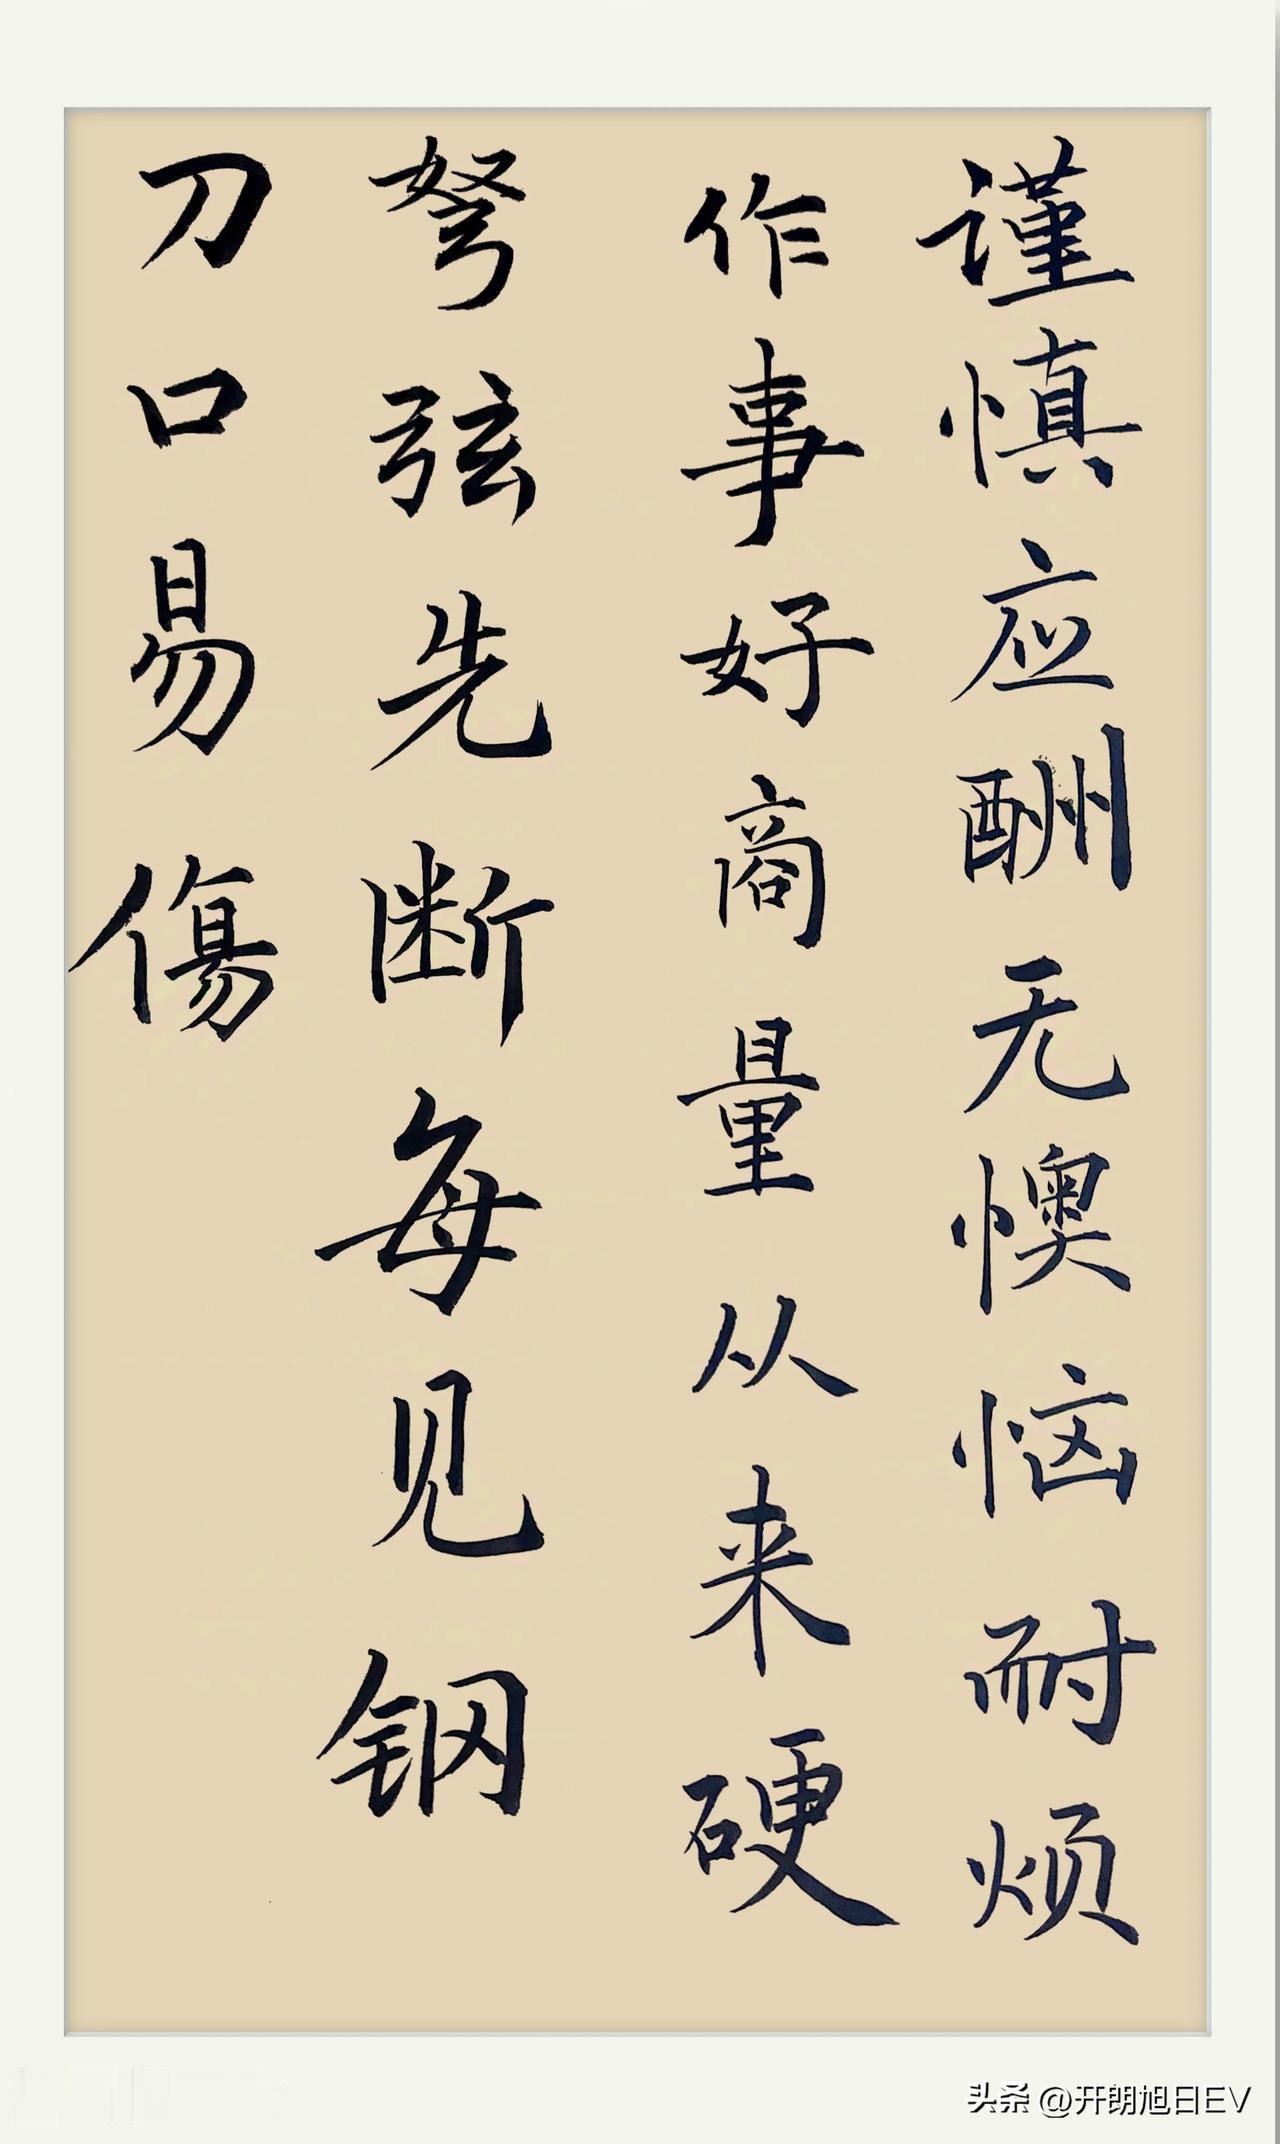 谨慎应酬无懊恼耐烦
作事好商量从来硬
弩弦先断每见钢
刀口易傷
头条 @开朗旭日EV